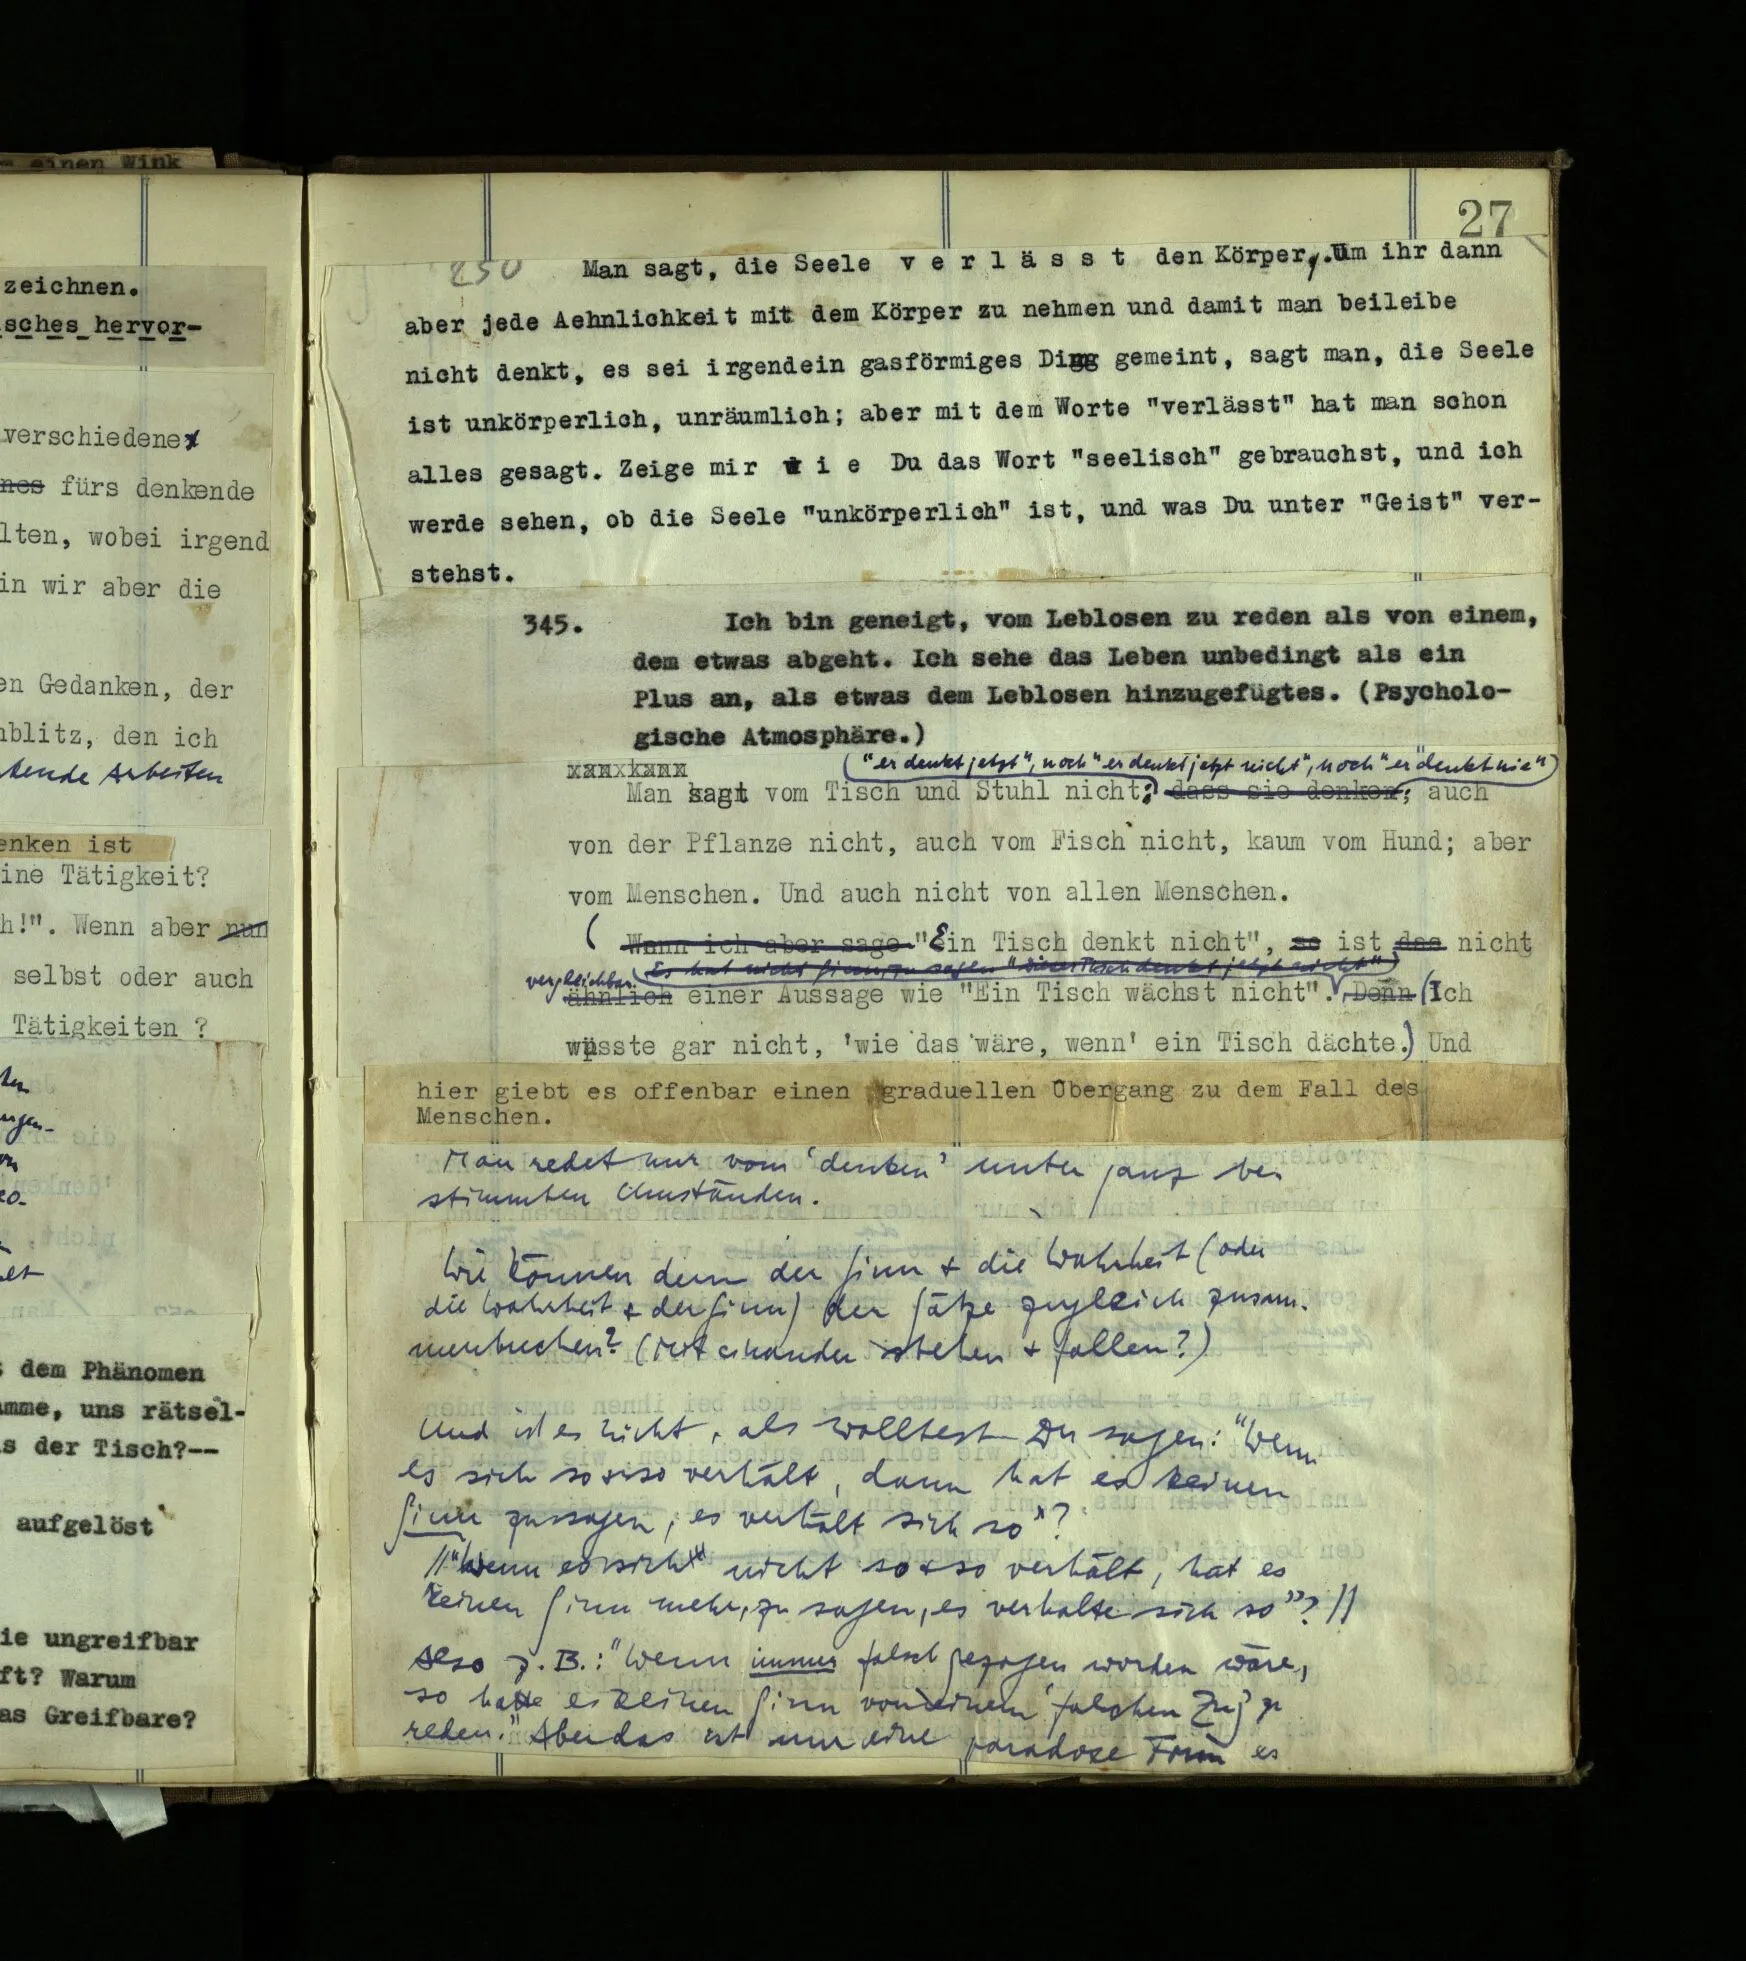 m einen Wink
zeichnen.
isches hervor-
verschiedene
nes fürs denkende
lten, wobei irgend
in wir aber die
en Gedanken, der
nblitz, den ich
tende Arbeiten
enken ist
ine Tätigkeit?
h!". Wenn aber nun
selbst oder auch
Tätigkeiten ?
t dem Phänomen
amme, uns rätsel-
s der Tisch?--
aufgelöst
ie ungreifbar
ft? Warum
as Greifbare?
27
250 Man sagt, die Seele v e r l ä s s t den Körper,. Um ihr dann
aber jede Aehnlichkeit mit dem Körper zu nehmen und damit man beileibe
nicht denkt, es sei irgendein gasförmiges Ding gemeint, sagt man, die Seele
ist unkörperlich, unräumlich; aber mit dem Worte "verlässt" hat man schon
alles gesagt. Zeige mir w i e Du das Wort "seelisch" gebrauchst, und ich
werde sehen, ob die Seele "unkörperlich" ist, und was Du unter "Geist" ver-
stehst.
345. Ich bin geneigt, vom Leblosen zu reden als von einem,
dem etwas abgeht. Ich sehe das Leben unbedingt als ein
Plus an, als etwas dem Leblosen hinzugefügtes. (Psycholo-
gische Atmosphäre.)
("er denkt jetzt", noch "er denkt jetzt nicht", noch "er denkt nie")
Man sagt vom Tisch und Stuhl nicht: dass sie denken; auch
von der Pflanze nicht, auch vom Fisch nicht, kaum vom Hund; aber
vom Menschen. Und auch nicht von allen Menschen.
( Wenn ich aber sage "Ein Tisch denkt nicht", so ist das nicht
vergleichbar (Es hat nicht Sinn, zu sagen "Dieser Tisch denkt jetzt nicht")
ähnlich einer Aussage wie "Ein Tisch wächst nicht". Denn (Ich
wüsste gar nicht, 'wie das wäre, wenn' ein Tisch dächte.) Und
hier giebt es offenbar einen graduellen Übergang zu dem Fall des
Menschen.
Man redet nur vom 'denken' unter ganz be-
stimmten Umständen.
Wie können denn der Sinn & die Wahrheit (oder
die Wahrheit & der Sinn) der Sätze zugleich zusam-
menbrechen? (Mit einander stehen & fallen?)
Und ist es nicht, als wolltest Du sagen: "Wenn
es sich so & so verhält, dann hat es keinen
Sinn zu sagen, es verhält sich so"?
//"Wenn es sich nicht so & so verhält, hat es
keinen Sinn mehr, zu sagen, es verhalte sich so"? //
Also z.B.: "Wenn immer falsch gezogen worden wäre,
so hätte es keinen Sinn von einem 'falschen Zug' zu
reden." Aber das ist nur eine paradoxe Form es